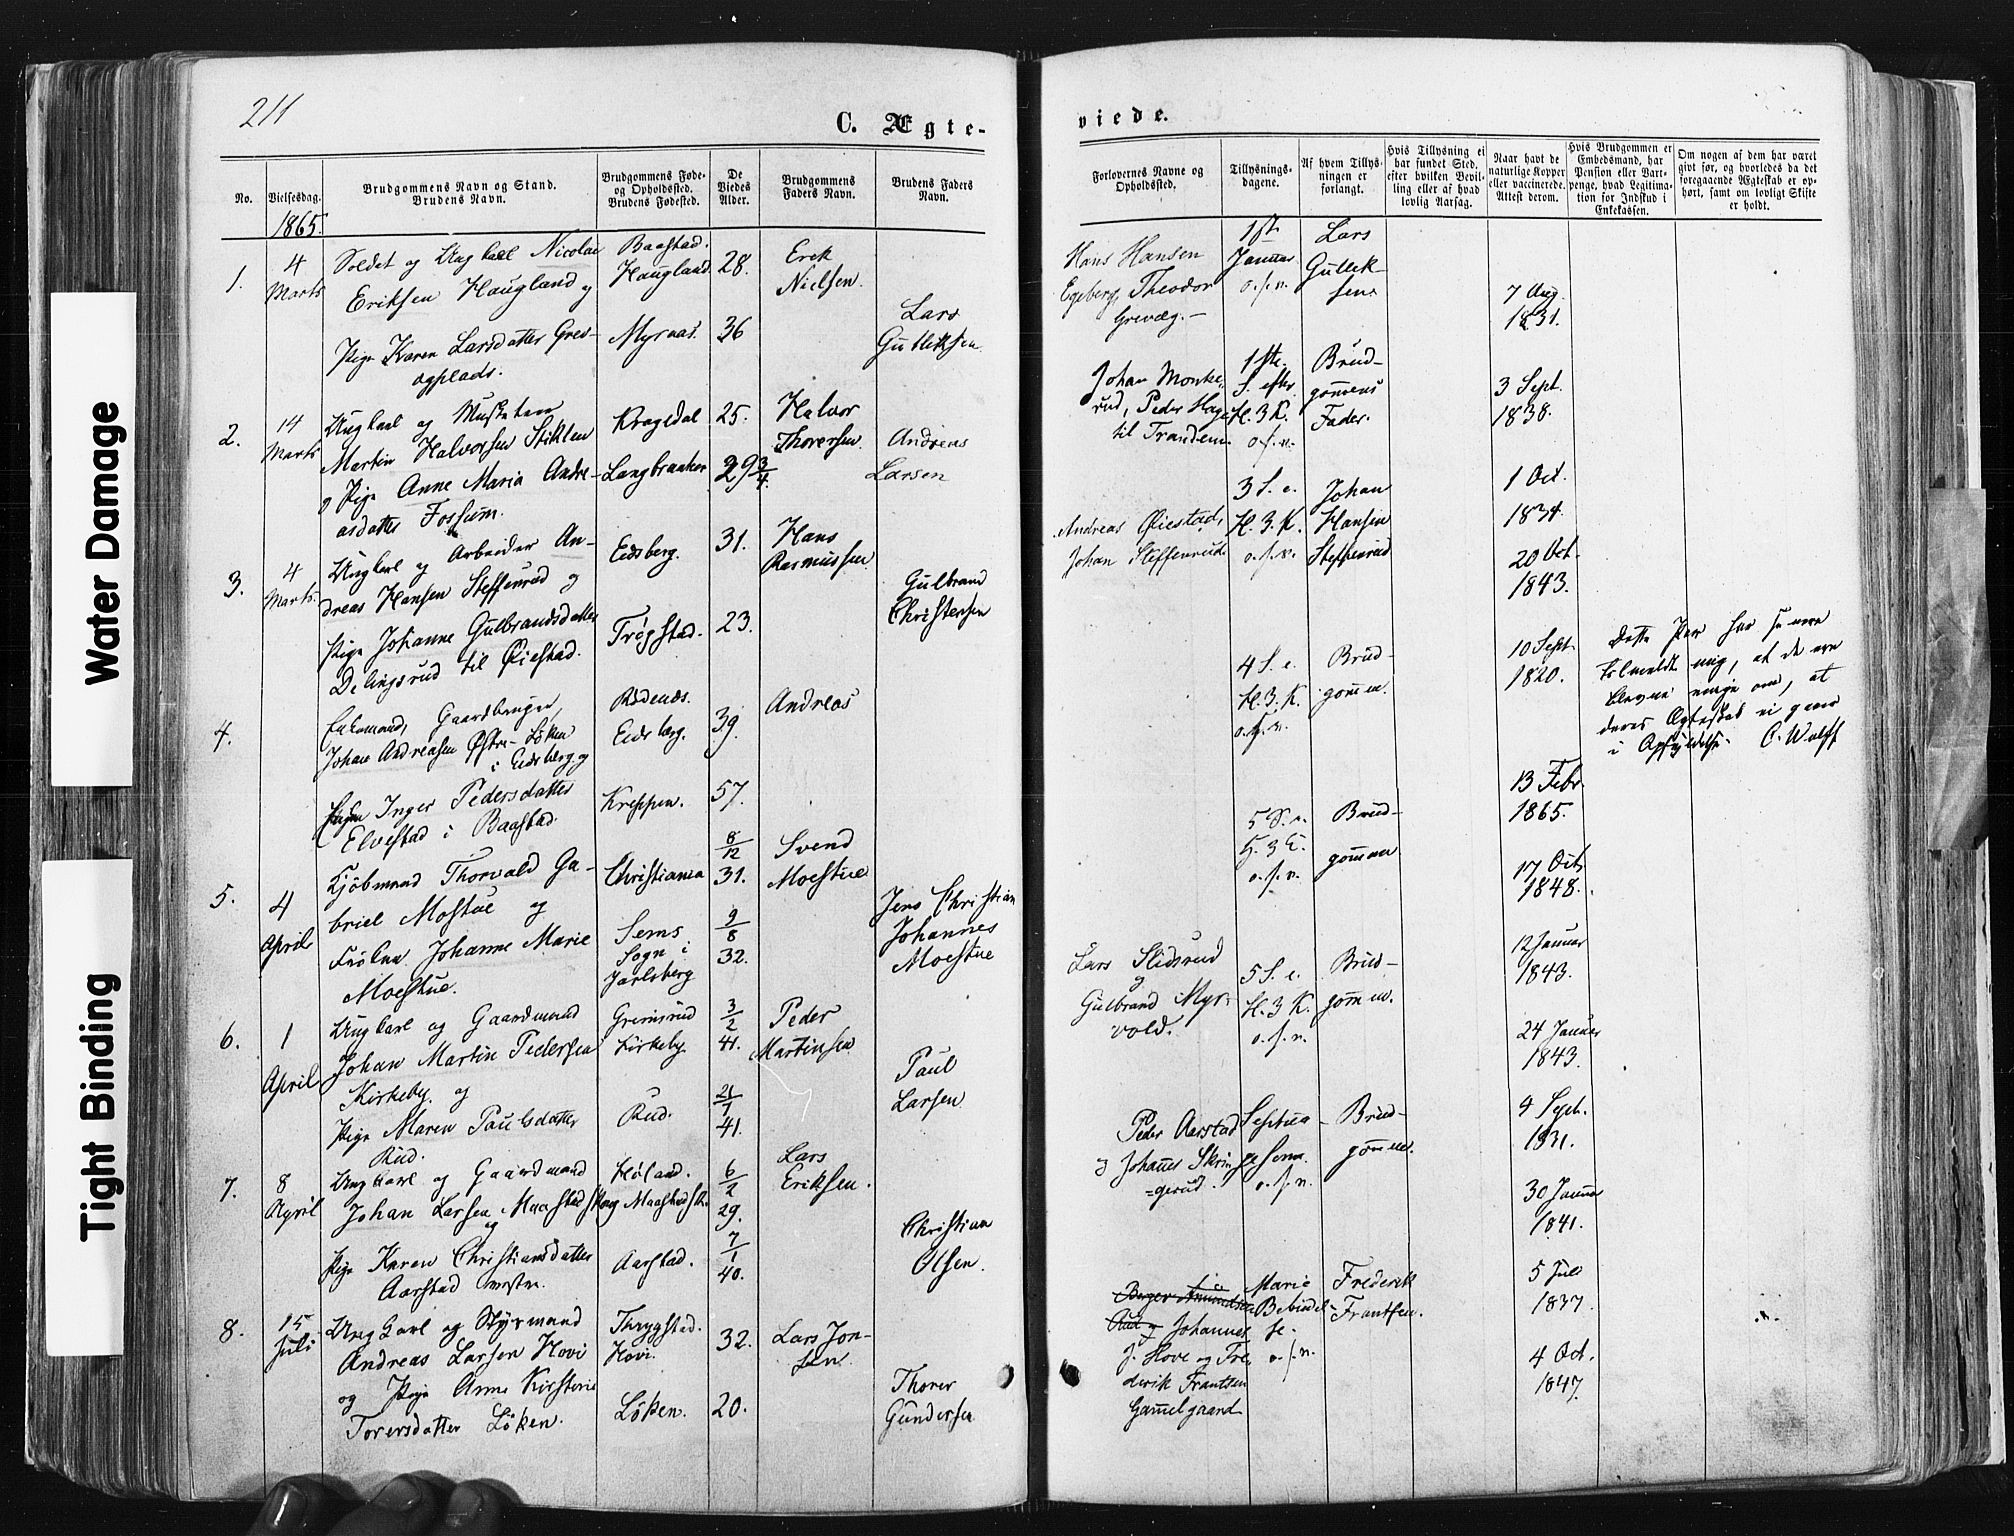 211
C. Ægte-
viede.
Water Damage
Tight Binding
No.
Vielsesdag.
Brudgommens Navn og Stand.
Brudens Navn.
Brudgommens Føde-
og Opholdssted.
Brudens Fødested.
De
Viedes
Alder.
Brudgommens
Faders Navn.
Brudens Faders
Navn.
Forlovernes Navne og
Opholdssted.
Tillysnings-
dagene.
Af hvem Tillys-
ningen er
forlangt.
Hvis Tillysning ei
har fundet Sted,
efter hvilken Bevil-
ling eller af hvad
lovlig Aarsag.
Naar havt de
naturlige Kopper
eller vaccinerede.
Attest derom.
Hvis Brudgommen er
Embedsmand, har
Pension eller Vart-
penge, hvad Legitima-
tion for Indskud i
Enkekassen.
Om nogen af dem har været
gift før, og hvorledes da det
foregaaende Ægteskab er op-
hørt, samt om lovligt Skifte
er holdt.
1865.
1.
4
Marts
Soldat og Ungkarl Nicolai
Eriksen Haugland og
Pige Karen Larsdatter Grev-
ogplads.
Baastad.
Haugland
Myrnas.
28.
36
Erek
Nielsen.
Lars
Gulleksen.
Hans Hansen
Egeberg, Theodor
Grevæg.
1ste
Januar
o.s.v.
Lars
Gullek-
sen.
7 Aug.
1831.
3 Sept.
1838.
2.
14
Marts
Ungkarl og Musketeer
Martin Halvorsen Stiklen
og Pige Anne Maria Andre-
asdatter Fossum.
Kragedal
Langbraaker
25.
29 3/4.
Halvor
Thorersen.
Andreas
Larsen
Johan Monke-
rud, Peder Hage
til Trandem.
1ste.
S. efter
H. 3. K.
o.s.v.
Brud-
gomens
Fader.
1 Oct.
1834.
3.
4
Marts.
Ungkarl og Arbeider An-
dreas Hansen Steffenrud og
Pige Johanne Gulbrandsdatter
Delingsrud til Øiestad.
Eidsberg.
Trøgstad.
31.
23.
Hans
Rasmussen
Gulbrand
Christensen
Andreas Øiestad,
Johan Steffenrud.
3 S. e.
H. 3. K.
o.s.v.
Johan
Hansen
Steffenrud
20 Oct.
1843.
4.
Enkemand, Gaardbruger,
Johan Andreasen Østre-Løken
i Eidsberg og
Pigen Inger Pedersdatter
Elvestad i Baastad.
Rødenæs.
Eidsberg.
Kreppen.
39.
57.
Andreas
4 S. e.
H. 3. K.
o.s.v.
Brud-
gommen.
10 Sept.
1820.
Dette Par har senere
tilmeldt mig, at de ere
blevne enige om, at
deres Ægteskab ei gaar
i Opfyldelse. C. Wulff
13 Febr.
1865.
5.
4
April
Kjøbmand Thorvald Ga-
briel Moestue og
Frøken Johanne Marie
Moestue.
Christiania
Sems
Sogn i
Jarlsberg
8/12
31.
9/8
32.
Svend
Moestue
Jens Christian
Johannes
Moestue
5 S. e.
H. 3 K.
o.s.v.
Brud-
gommen
17 Oct.
1848.
12 Januar
1843.
6.
1
April
Ungkarl og Gaardmand
Johan Martin Pedersen
Kirkeby. og
Pige Maren Paulsdatter
Rud.
Gremsrud
Kirkeby
Rud.
3/2
41.
21/1
41.
Peder
Martinsen
Paul
Larsen
Lars Slidsrud
og
Gulbrand Myr-
vold.
5 S. e.
H. 3 K.
o.s.v.
Brud-
gommen.
24 Januar
1843.
7.
8
April
Ungkarl og Gaardmand
Johan Larsen Maastad Skog
og
Pige Karen Christiansdatter
Aarstad vestre.
Høland.
Maastadsk.
Aarstad.
6/2
29.
7/1
40.
Lars
Eriksen.
Christian
Olsen.
Peder Aarstad
og Johannes Skrin-
gerud.
Septua-
gesima.
o.s.v.
Brud-
gommen.
9 Sept.
1831.
30 Januar
1841.
8.
15
Juli
Ungkarl og Styrmand
Andreas Larsen Hovi
og Pige Anne Kirstine
Torersdatter Løken.
Thrygstad.
Hovi.
Løken.
32.
20.
Lars Jon-
sen.
Thorer
Gundersen
Johannes
J. Hove og Fre-
derik Frantsen
Gamelgaard
Marie
Bebudel-
se.
o.s.v.
Frederik
Frantsen.
5 Juli
1837.
4 Oct.
1847.